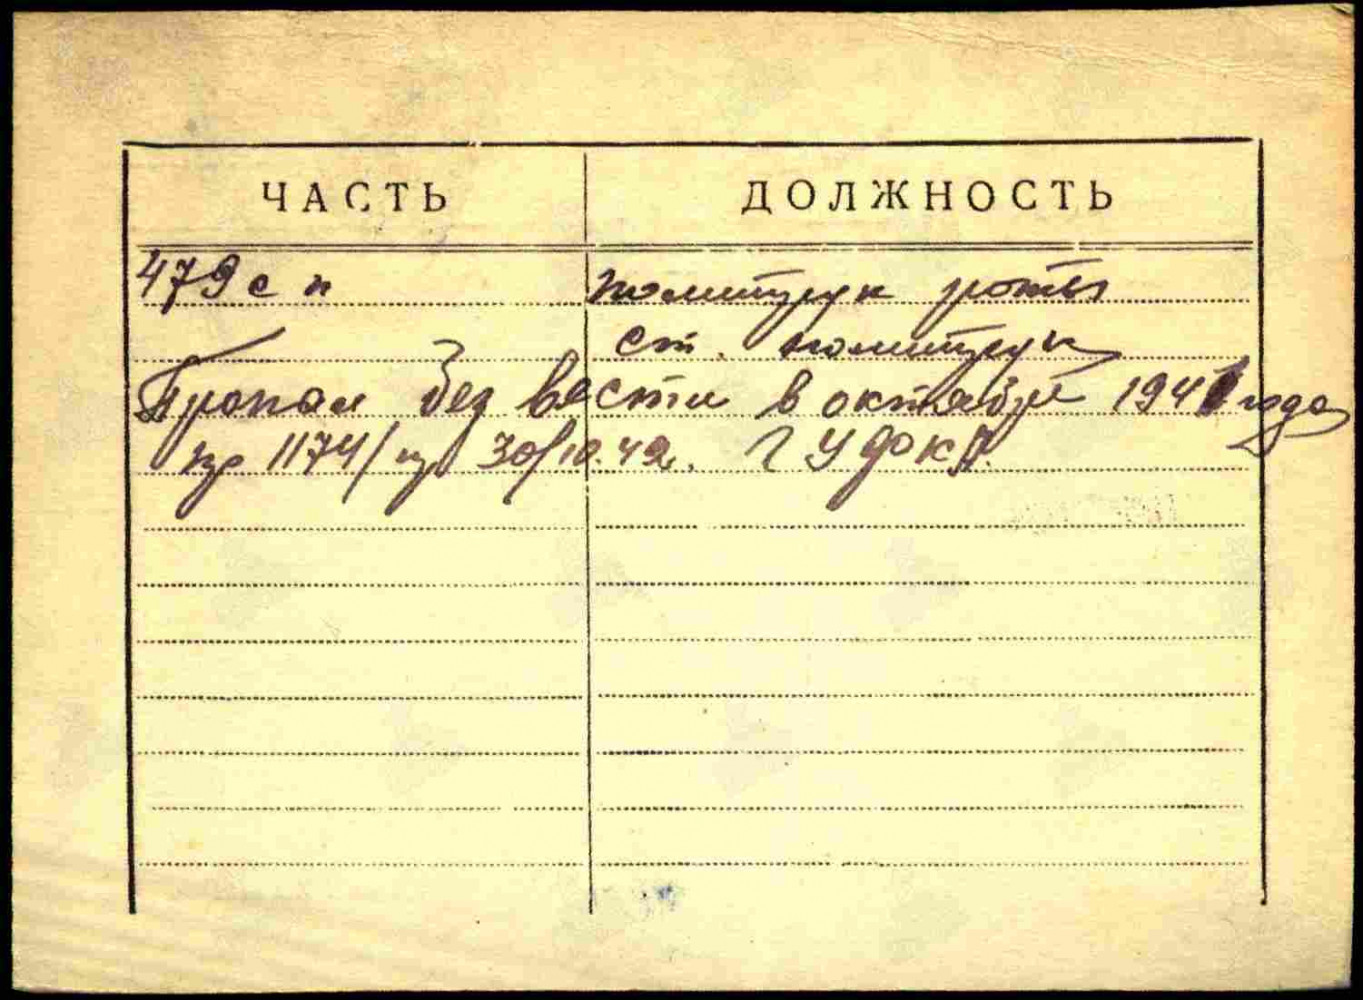 ЧАСТЬ ДОЛЖНОСТЬ
479 с п политрук роты
ст. политрук
Пропал без вести в октябре 1941 года
пр 1174/ 30/10.42. ГУФКА